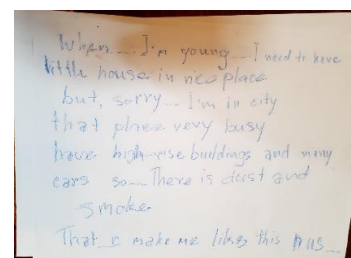 When.... I'm young.... I need to have
little house in nice place
but, sorry.... I'm in city
that place very busy
have high-rise buildings and many
cars so.... There is dust and
smoke
That is make me likes this